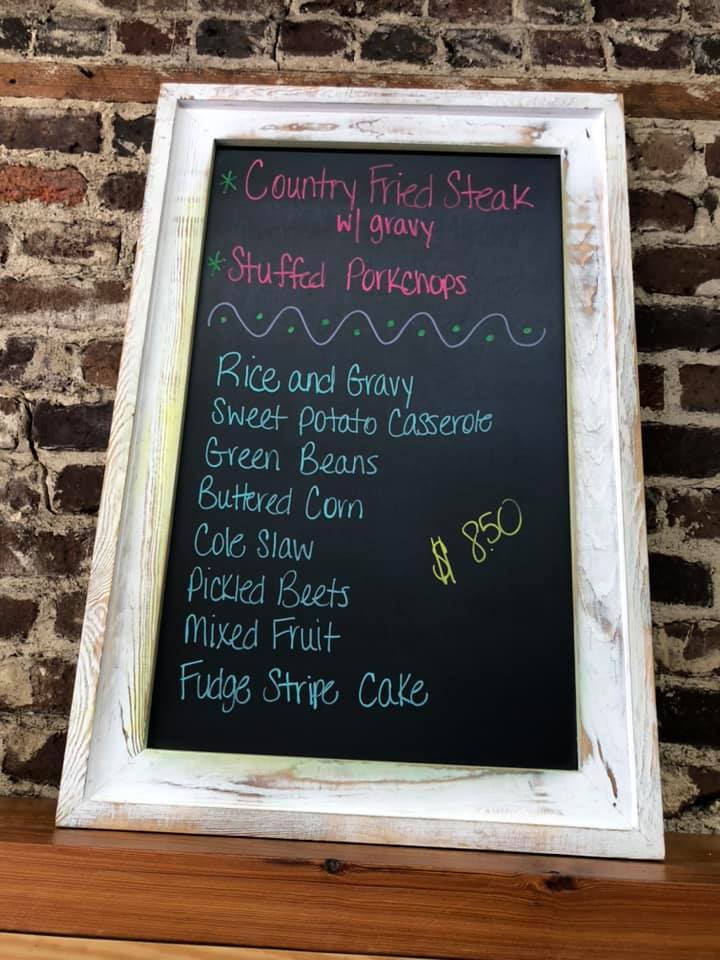 * Country Fried Steak
w/ gravy
* Stuffed Porkchops
Rice and Gravy
Sweet Potato Casserole
Green Beans
Buttered Corn
Cole Slaw
$ 8.50
Pickled Beets
Mixed Fruit
Fudge Stripe Cake